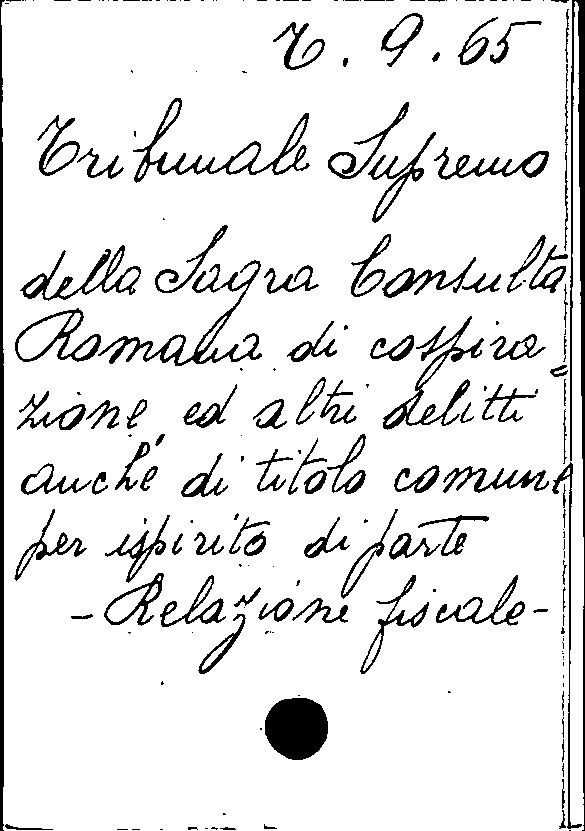 7. 9. 65
Tribunale Supremo
della Sagra Consulta
Romana di cospira=
zione ed altri delitti
anché di titolo comune
per ispirito di parte
- Relazione fiscale -